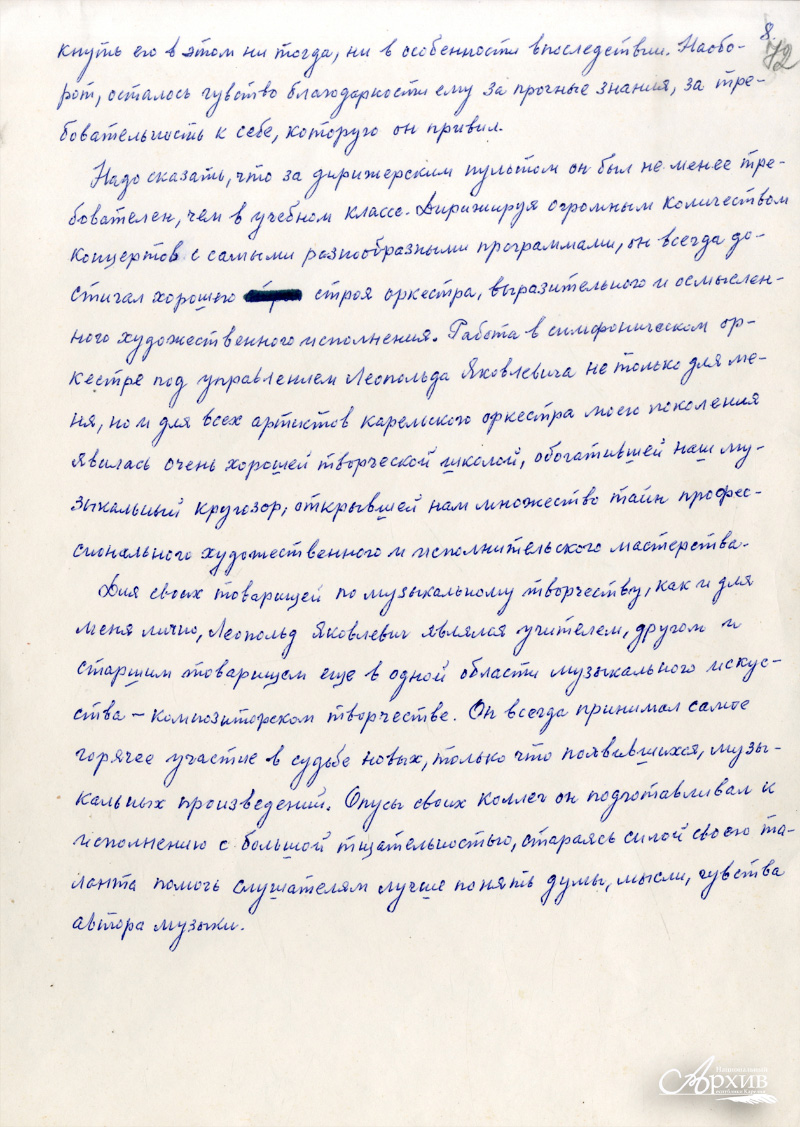 8.
72
кнуть его в этом ни тогда, ни в особенности впоследствии. Наобо-
рот, осталось чувство благодарности ему за прочные знания, за тре-
бовательность к себе, которую он привил.
Надо сказать, что за дирижерским пультом он был не менее тре-
бователен, чем в учебном классе. Дирижируя огромным количеством
концертов с самыми разнообразными программами, он всегда до-
стигал хорошего строя оркестра, выразительного и осмыслен-
ного художественного исполнения. Работа в симфоническом ор-
кестре под управлением Леопольда Яковлевича не только для ме-
ня, но и для всех артистов карельского оркестра моего поколения
явилась очень хорошей творческой школой, обогатившей наш му-
зыкальный кругозор, открывшей нам множество тайн профес-
сионального художественного и исполнительского мастерства.
Для своих товарищей по музыкальному творчеству, как и для
меня лично, Леопольд Яковлевич являлся учителем, другом и
старшим товарищем еще в одной области музыкального искус-
ства – композиторском творчестве. Он всегда принимал самое
горячее участие в судьбе новых, только что появившихся, музы-
кальных произведений. Опусы своих коллег он подготавливал к
исполнению с большой тщательностью, стараясь силой своего та-
ланта помочь слушателям лучше понять думы, мысли, чувства
автора музыки.
Национальный
Архив
республики Карелия